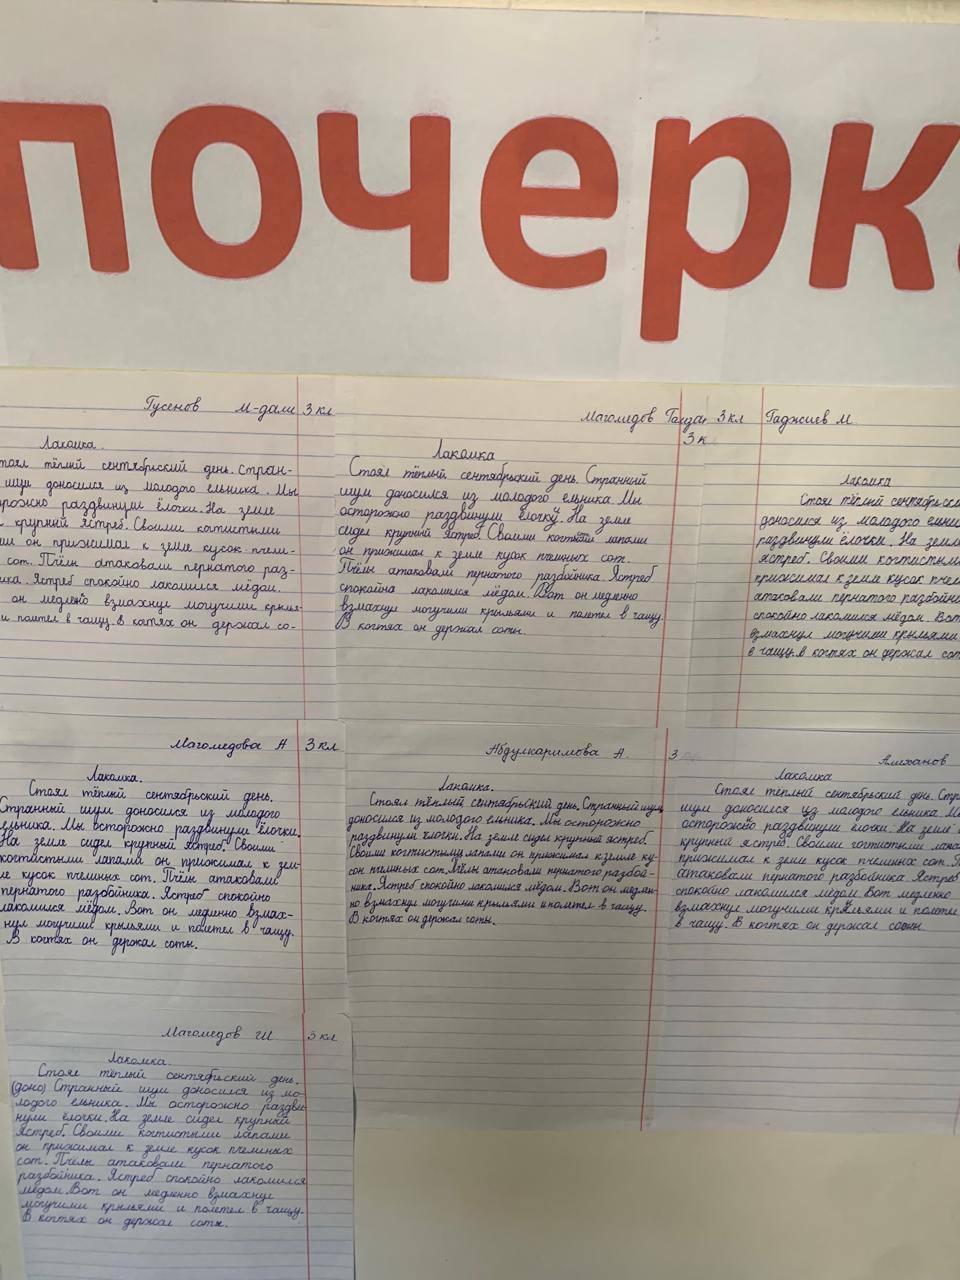 почерк
Гусенов М-дали 3 кл
Лакомка.
тоял тёплый сентябрьский день. Стран-
шум доносился из молодого ельника. Мы
орожно раздвинули ёлочки. На земле
крупный ястреб. Своими когтистыми
он прижимал к земле кусок пчели-
сот. Пчёлы атаковали пернатого раз-
ика. Ястреб спокойно лакомился мёдом.
он медлено взмахнул могучими крылья-
и полетел в чащу. В катях он держал со-
Магомедов 3 кл
3 к
Лакомка
Стоял тёплый сентябрьский день. Странный
шум доносился из молодого ельника. Мы
осторожно раздвинули ёлочку. На земле
сидел крупный ястреб. Своими когтистый лапами
он прижимал к земле кусок пчелиных сот.
Пчёлы атаковали пернатого разбойника. Ястреб
спокойна лакомился мёдом. Вот он медленно
взмахнул могучими крыльями и полетел в чащу.
В когтях он держал соты.
Гаджиев М.
Лакомка
Стоял тёплый сентябрьски
доносился из молодого ельни
раздвинули ёлочки. На земл
ястреб. Своими когтистым
прижимал к земле кусок пче
атаковали пернатого разбойн
спокойно лакомился мёдом. Вот
взмахнул могучими крыльями
в чащу. в когтях он держал сот
Магомедова А 3 кл
Лакомка.
Стоял тёплый сентябрьский день.
Странный шум доносился из молодого
ельника. Мы осторожно раздвинули ёлочки.
На земле сидел крупный ястреб. Своими
когтистыми лапами он прижимал к зем-
ле кусок пчелиных сот. Пчёлы атаковали
пернатого разбойника. Ястреб спокойно
лакомился мёдом. Вот он медленно взмах-
нул могучими крыльями и полетел в чащу.
В когтях он держал соты.
Абдулкаримова А. 3
Лакомка.
Стоял тёплый сентябрьский день. Странный шум
доносился из молодого ельника. Мы осторожно
раздвинули ёлочки. На земле сидел крупный ястреб.
Своими когтистыми лапами он прижимал к земле ку-
сок пчелиных сот. Пчёлы атаковали пернатого разбой-
ника. Ястреб спокойно лакомился мёдом. Вот он медлен-
но взмахнул могучими крыльями и полетел в чащу.
В когтях он держал соты.
Алиханов
Лакомка
Стоял тёплый сентябрьский день. Стр
шум доносился из молодого ельника. М
осторожно раздвинули ёлочки. На земле
крупный ястреб. Своими когтистыми лапа
прижимал к земле кусок пчелиных сот. П
атаковали пернатого разбойника. Ястреб
спокойно лакомился мёдом. Вот медленно
взмахнул могучими крыльями и полете
в чащу. В когтях он держал соты.
Магомедов Ш 3 кл
Лакомка.
Стоял тёплый сентябрьский день.
(доно) Странный шум доносился из мо-
лодого ельника. Мы осторожно раздви-
нули ёлочки. На земле сидел крупный
ястреб. Своими когтистыми лапами
он прижимал к земле кусок пчелиных
сот. Пчёлы атаковали пернатого
разбойника. Ястреб спокойно лакомился
мёдом. Вот он медленно взмахнул
могучими крыльями и полетел в чащу.
В когтях он держал соты.